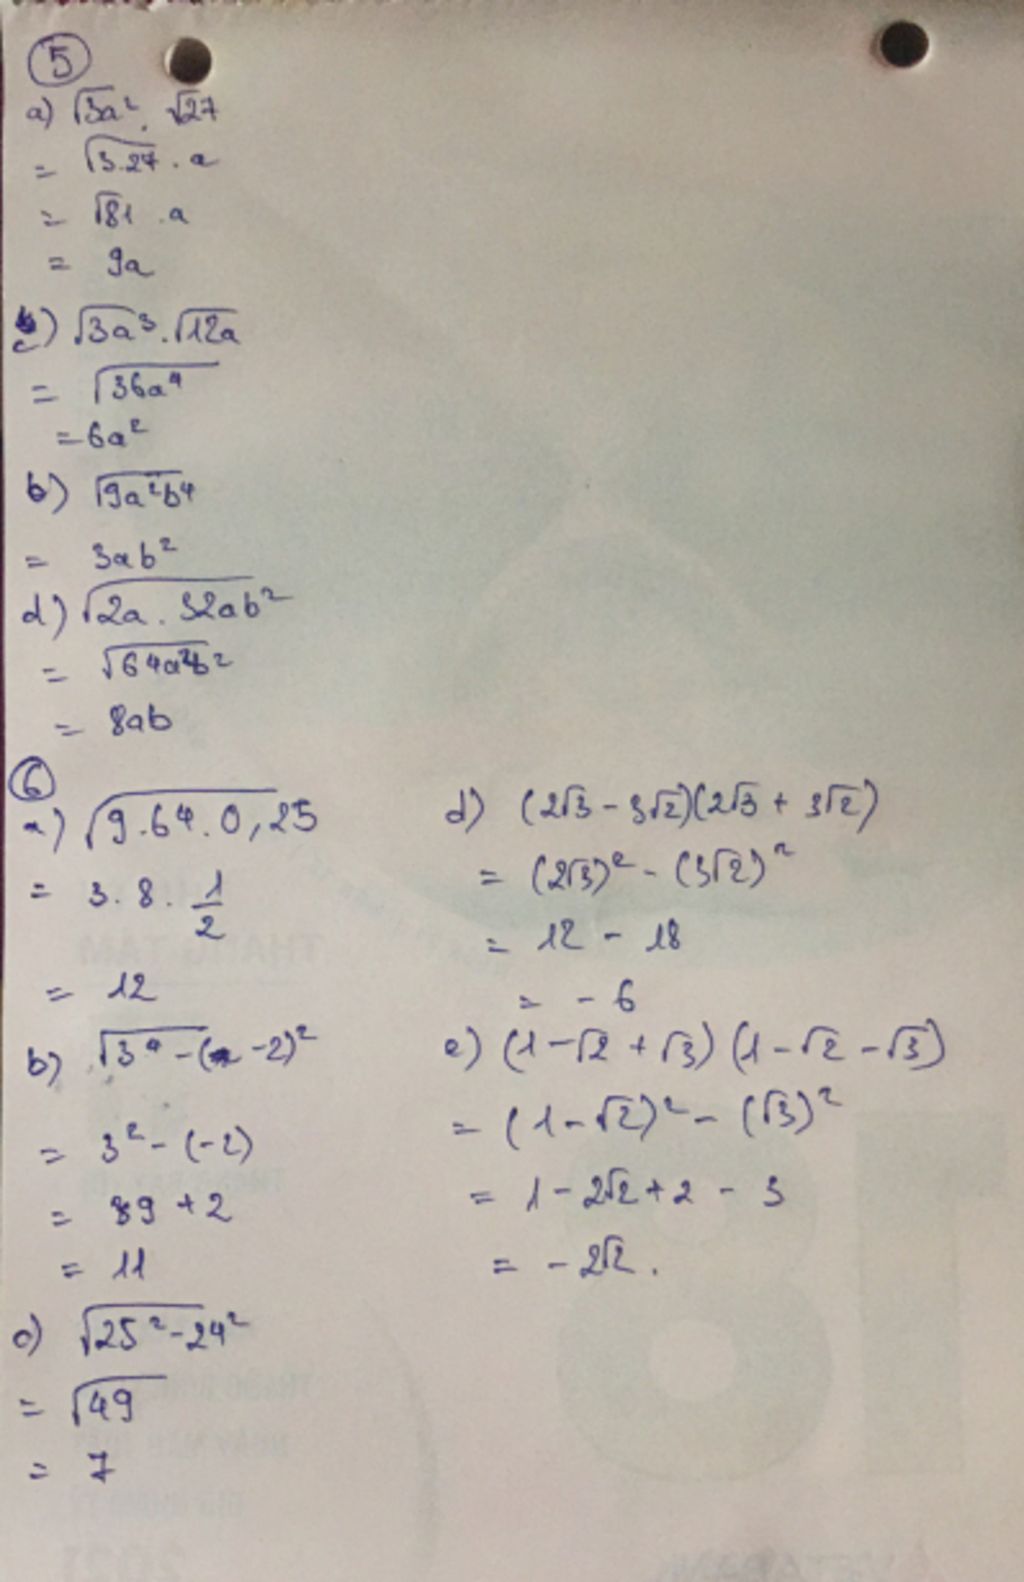 5
a) √3a². √27
= √3.27 . a
= √81 . a
= 9a
c) √3a³.√12a
= √36a⁴
= 6a²
b) √9a²b⁴
= 3ab²
d) √2a . 32ab²
= √64a²b²
= 8ab
6
a) √9.64.0,25
= 3. 8. 1/2
= 12
b) √3⁴ - (-2)²
= 3² - (-2)
= 9 + 2
= 11
c) √25² - 24²
= √49
= 7
d) (2√3 - 3√2)(2√3 + 3√2)
= (2√3)² - (3√2)²
= 12 - 18
= - 6
e) (1 - √2 + √3) (1 - √2 - √3)
= (1 - √2)² - (√3)²
= 1 - 2√2 + 2 - 3
= - 2√2.